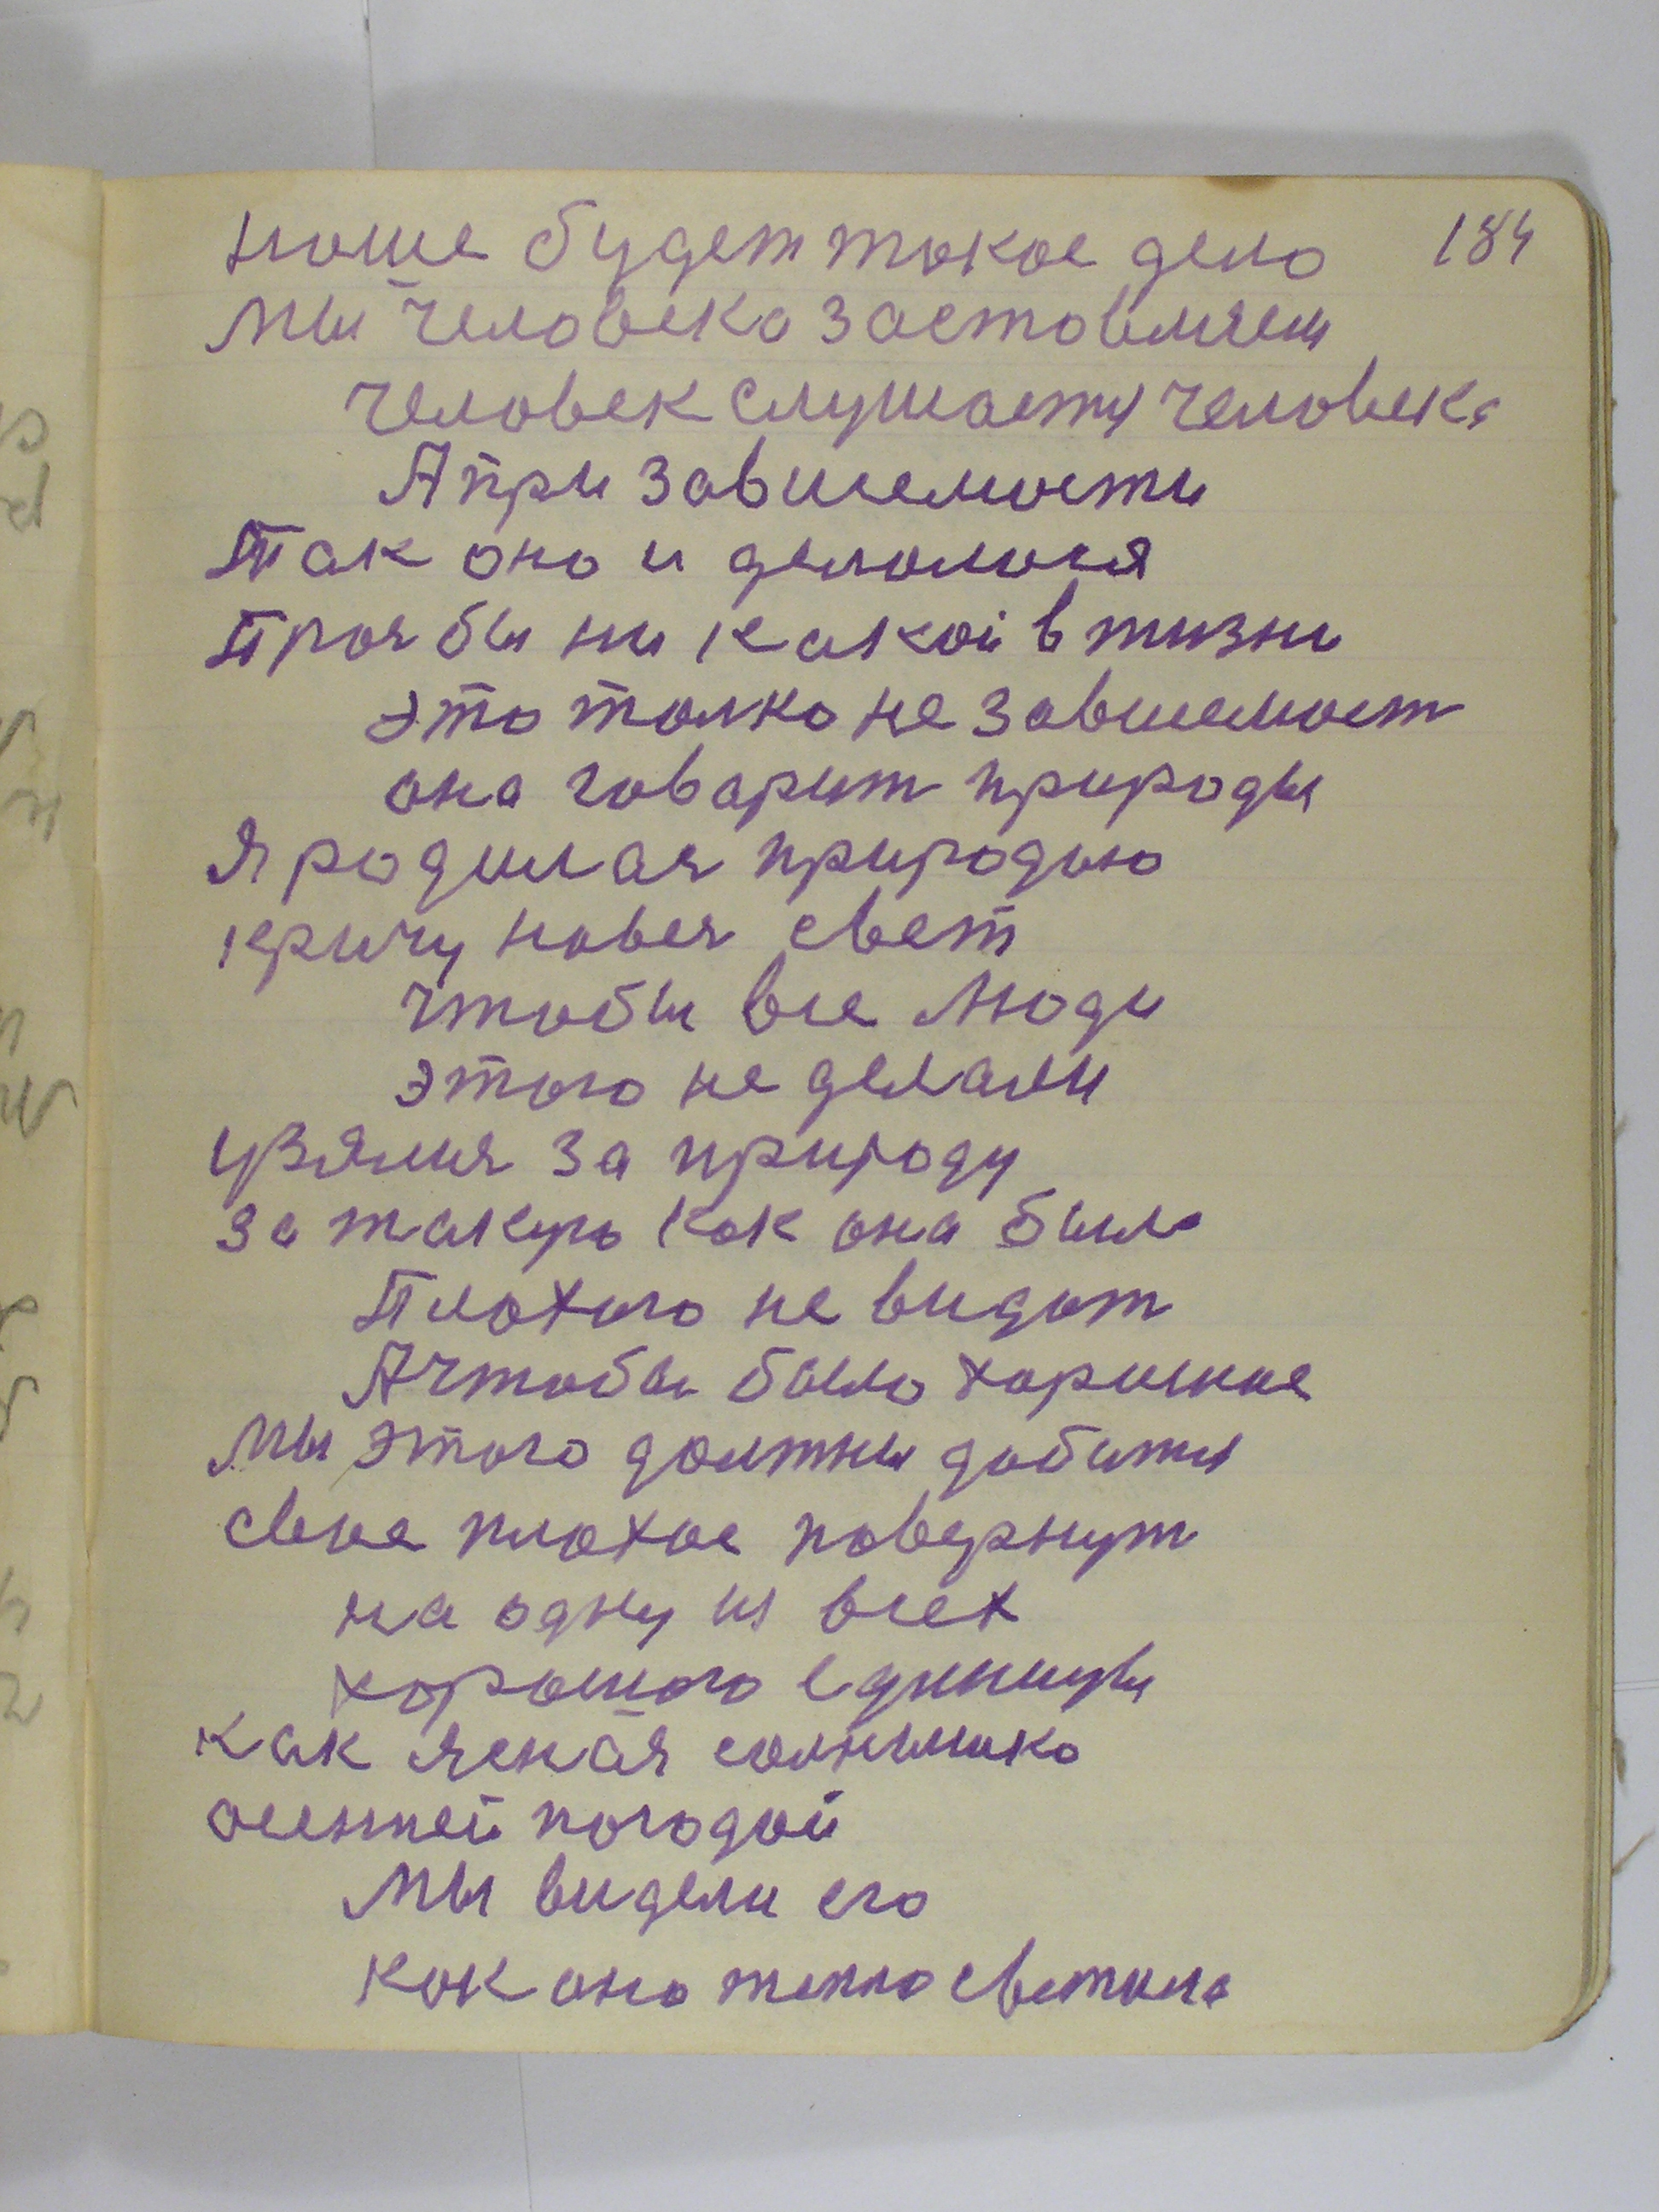 наше будет такое дело 184
мы человека заставляем
человек слушаетя человека
А при зависемости
Так оно и делалося
Прозбы ни какой в жизни
это толко не зависемост
она говарит природы
я родилася природою
кричу на вея свет
чтобы все люди
этого не делали
узялися за природу
за такую как она была
Плохого не видат
А чтобы было харошое
мы этого должны добитя
свае плохое повернут
на одну из всех
хорошого единицы
как ясная солнышко
осенней погодой
мы видели его
как оно тепло светила